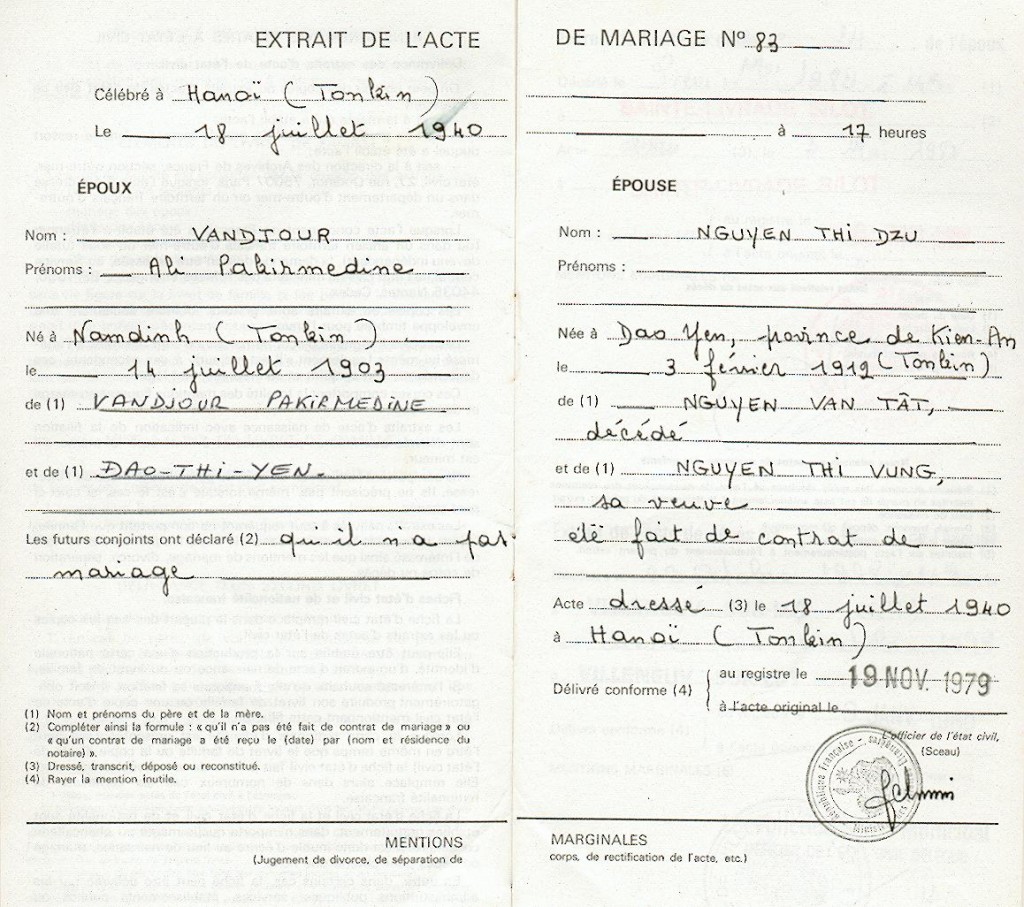 EXTRAIT DE L'ACTE
Célébré à Hanoï (Tonkin)
Le 18 juillet 1940
ÉPOUX
Nom : VANDJOUR
Prénoms : Ali Pakirmedine
Né à Namdinh (Tonkin)
le 14 juillet 1903
de (1) VANDJOUR PAKIRMEDINE
et de (1) DAO-THI-YEN.
Les futurs conjoints ont déclaré (2) qu'il n'a pas
mariage
(1) Nom et prénoms du père et de la mère.
(2) Compléter ainsi la formule : « qu'il n'a pas été fait de contrat de mariage » ou
« qu'un contrat de mariage a été reçu le (date) par (nom et résidence du
notaire) ».
(3) Dressé, transcrit, déposé ou reconstitué.
(4) Rayer la mention inutile.
MENTIONS
(Jugement de divorce, de séparation de
DE MARIAGE N° 83
à 17 heures
ÉPOUSE
Nom : NGUYEN THI DZU
Prénoms :
Née à Dao Yen, province de Kien-An
le 3 février 1912 (Tonkin)
de (1) NGUYEN VAN TÂT,
décédé
et de (1) NGUYEN THI VUNG,
sa veuve
été fait de contrat de
Acte dressé (3) le 18 juillet 1940
à Hanoï (Tonkin)
Délivré conforme (4)
au registre le 19 NOV. 1979
à l'acte original le
L'officier de l'état civil,
(Sceau)
République Française
MARGINALES
corps, de rectification de l'acte, etc.)